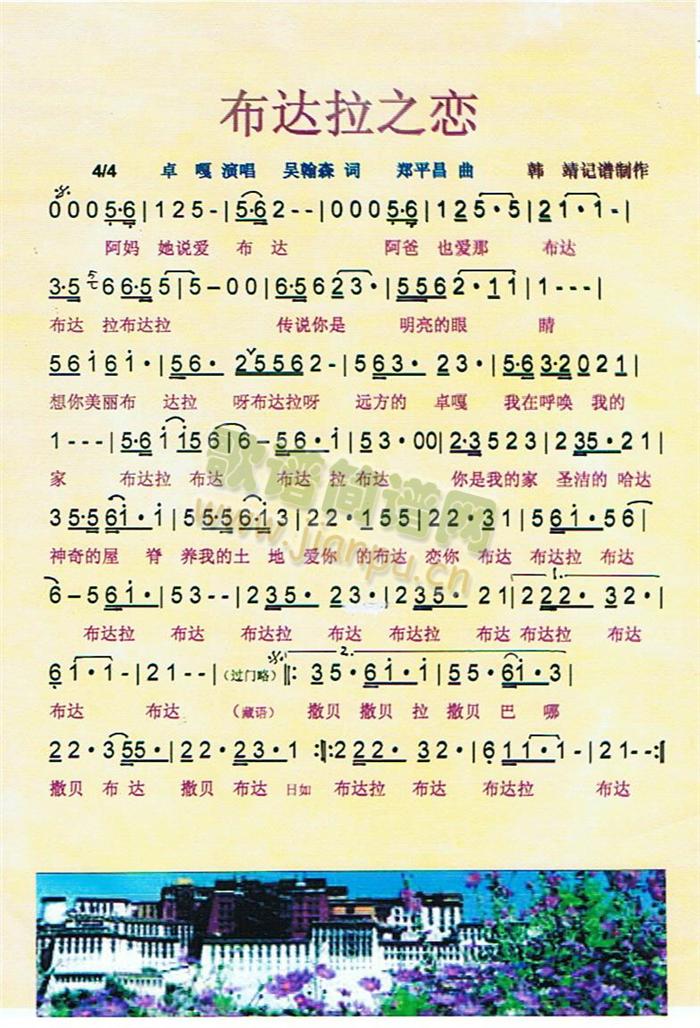 布达拉之恋
4/4 卓 嘎 演唱 吴翰森 词 郑平昌 曲 韩 靖记谱制作
0 0 0 5·6 | 1 2 5 - | 5·6 2 - - | 0 0 0 5·6 | 1 2 5·5 | 2 1·1 - |
阿妈 她说爱 布 达 阿爸 也爱那 布达
3·5 6 6·5 5 | 5 - 0 0 | 6·5 6 2 3· | 5 5 5 6 2·1 1 | 1 - - - |
布达 拉布达拉 传说你是 明亮的眼 睛
5 6 i 6 i· | 5 6· 2 5 5 6 2 - | 5 6 3· 2 3· | 5·6 3·2 0 2 1 |
想你美丽布 达拉 呀布达拉呀 远方的 卓嘎 我在呼唤 我的
1 - - - | 5·6 i i 5 6 | 6 - 5 6·i | 5 3·0 0 | 2·3 5 2 3 | 2 3 5·2 1 |
家 布达拉 布达 布达 拉 布达 你是我的家 圣洁的 哈达
3 5·5 6 i·i | 5 5·5 6·i 3 | 2 2·1 5 5 | 2 2·3 1 | 5 0 6 i·5 6 |
神奇的屋 脊 养我的土 地 爱你 的布达 恋你 布达 布达拉 布达
6 - 5 6 i· | 5 3 - - | 2 3 5· 2 3· | 2 3 5· 2 1 | 2 2 2· 3 2· |
布达拉 布达 布达拉 布达 布达拉 布达 布达拉 布达
1.
6 1·1 - | 2 1 - - | (过门略) ‖: 3 5·6 i·i | 5 5·6 i·3 |
2.
布达 布达 (藏语) 撒贝 撒贝 拉 撒贝 巴 哪
2 2·3 5 5· | 2 2· 2 3·1 :‖: 2 2 2· 3 2· | 6 1 1·1 | 2 1 - - :‖
撒贝 布 达 撒贝 布达 日如 布达拉 布达 布达拉 布达
歌谱简谱网
www.jianpu.cn